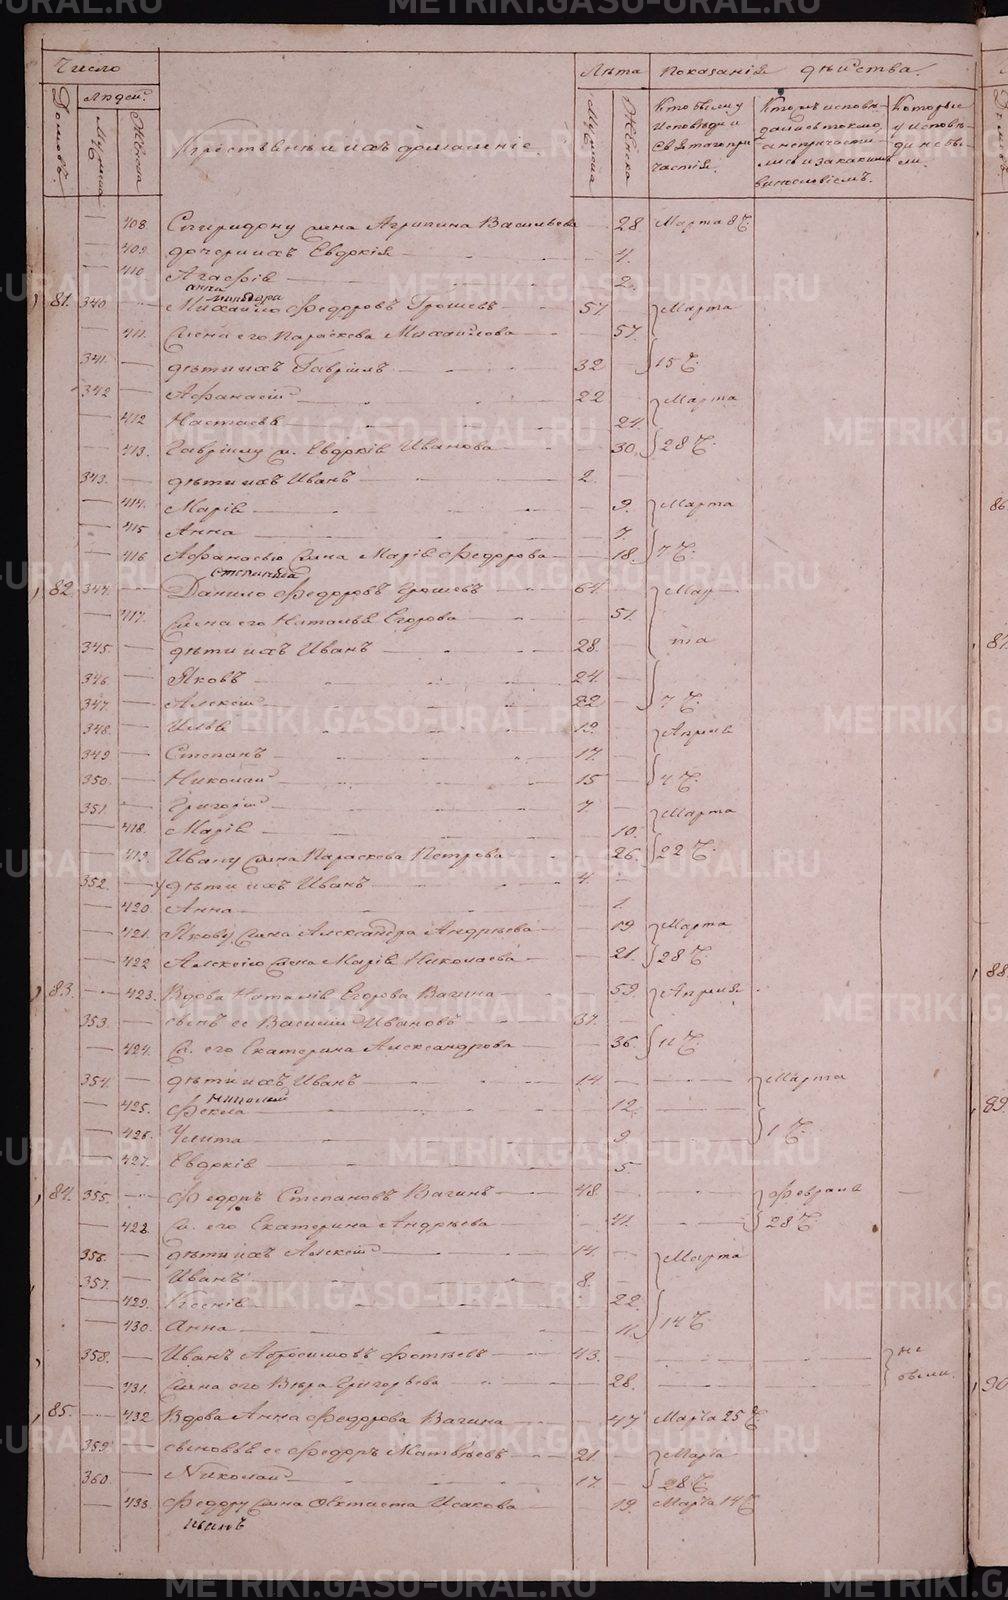 Число
Лѣта Показанія дѣйства.
Домовъ. Людей. Мужеска Женска
Мужеска Женска
Кто были у исповѣди и Святаго причастія.
Кто исповѣдался токмо, а не причастился и за какимъ винословіемъ.
Которые у исповѣди не были.
Крестьяне и ихъ домашніе.
408. Спиридону жена Агрипина Васильева 28 Марта 8 Ч.
409 дочери ихъ Евдокія 4.
410 Агафія 2.
анна
81. 340 Михайло Федоровъ Грошевъ 57 Марта
411. Жена его Параскева Михайлова 57.
341. дѣти ихъ Гавріилъ 32 15 Ч.
342 Афанасій 22 Марта
412 24.
413. Гавріилу ж. Евдокія Иванова 30. 28 Ч.
343. дѣти ихъ Иванъ 2.
414. Марія 9. Марта
415 Анна 7.
416 Афанасью жена Марія Федорова 18. 7 Ч.
82. 344. Данило Федоровъ Грошевъ 64. Мар
417. Жена его Наталья Егорова 51.
345. дѣти ихъ Иванъ 28. та
346. Яковъ 24.
347. Алексій 22 7 Ч.
348. Илья 19. Апреля
349 Степанъ 17.
350. Николай 15 4 Ч.
351. Григорій 7. Марта
418. Марія 10.
419. Ивану жена Параскева Петрова 26. 22 Ч.
352. дѣти ихъ Иванъ 4.
420. Анна 1.
421. Якову жена Александра Андрѣева 19 Марта
422 Алексію жена Марія Николаева 21. 28 Ч.
83. 423. Вдова Наталія Егорова Вагина 59. Апреля
353. сынъ ее Василій Ивановъ 37.
424. Ж. его Екатерина Александрова 36. 11 Ч.
354. дѣти ихъ Иванъ 14. Марта
николай
425. Фекла 12.
426. Улита 9. 1 Ч.
427. Евдокія 5.
84. 355. Федоръ Степановъ Вагинъ 48. Февраля
428. Ж. его Екатерина Андрѣева 41. 28 Ч.
356. дѣти ихъ Алексій 14. Марта
357. Иванъ 8.
429. Ксенія 22.
430. Анна 11. 14 Ч.
358. Иванъ Абросимовъ Фотѣевъ 43. не
431. Жена его Вѣра Григорьева 28. были.
85. 432 Вдова Анна Федорова Вагина 47 Марта 25 Ч.
359. сыновья ее Федоръ Матвѣевъ 21. Марта
360. Николай 17. 28 Ч.
433. Федору жена Овктиста Исакова 19. Марта 14 Ч
иванъ
86.
87.
88.
89.
90
METRIKI.GASO-URAL.RU